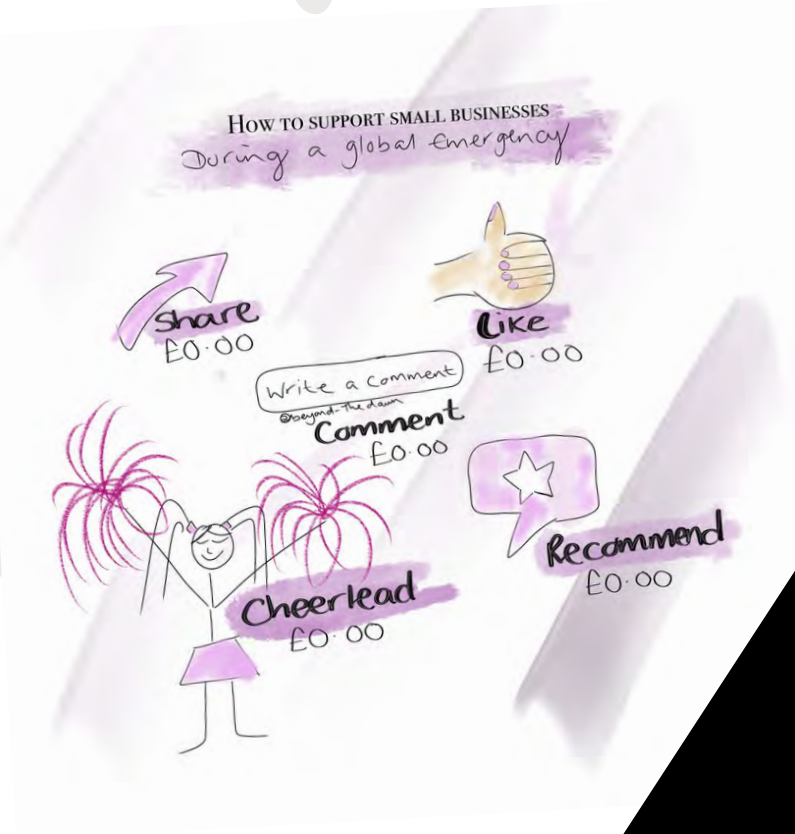 How to support small businesses
During a global Emergency
Share
£0.00
Like
£0.00
Write a comment
@beyond-the.dawn
Comment
£0.00
Recommend
£0.00
Cheerlead
£0.00